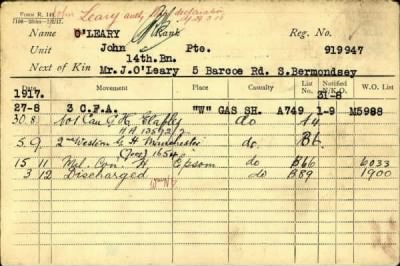 FORM R. 149
John Leary auth declaration
O'LEARY Rank Reg. No.
Unit John Pte. 919947
14th.Bn.
Next of Kin Mr.J.O'Leary 5 Barcoe Rd. S.Bermondsey
Date Movement Place Casualty List No. Notified N/K.O. W.O. List
1917. 31-8
27-8 3 C.F.A. "W" GAS SH. A749 1-9 M5988
30.8 No 1 Can G.H. Etaples do A4.
HA 13592/2
5.9. 2nd Western G.H. Manchester do. B6.
15 11 Mil. Con. H Epsom do B66 6033
3 12 Discharged do B89 1900